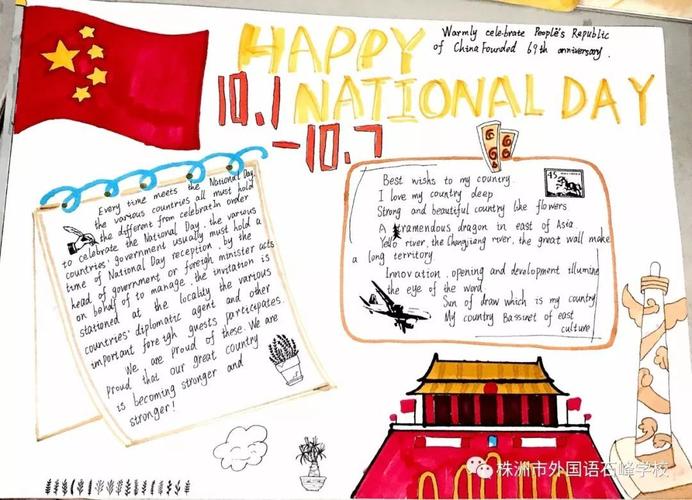 HAPPY
Warmly celebrate People's Republic
of China Founded 69th anniversary.
10.1
NATIONAL DAY
-10.7
Every time meets the National Day.
the various countries all must hold
the different from celebratIn order
to celebrate the National Day. the various
countries' government usually must hold a
time of National Day reception, by the
head of government or foreign minister acts
on behalf of to manage, the invitation is
stationed at the locality the various
countries' diplomatic agent and other
important foreigh guests participates.
We are proud of these. We are
Proud that our great country
is becoming stronger and
stronger!
66
Best wishes to my country
I love my country deep
Strong and beautiful country like flowers
A tramendous dragon in east of Asia
Yello river, the Changjiang river, the great wall make
a long territory
Innovation, opening and development illumine
the eye of the word
Sun of draw which is my country
My country Bassinet of east
culture
45
株洲市外国语石峰学校